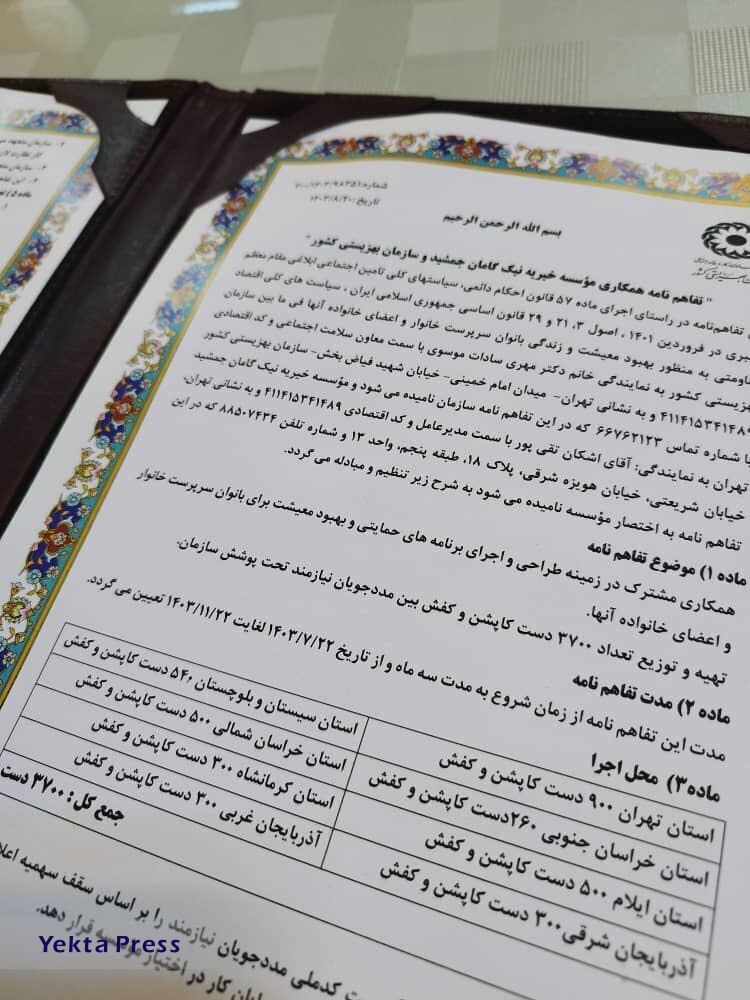 شماره: ۷۰۰/۱۴۰۳/۹۸۳۵۱
تاریخ: ۱۴۰۳/۸/۲۰
بسم الله الرحمن الرحیم
" تفاهم نامه همکاری مؤسسه خیریه نیک گامان جمشید و سازمان بهزیستی کشور "
تفاهم‌نامه در راستای اجرای ماده ۵۷ قانون احکام دائمی، سیاستهای کلی تامین اجتماعی ابلاغی مقام معظم
در فروردین ۱۴۰۱ ، اصول ۳، ۲۱ و ۲۹ قانون اساسی جمهوری اسلامی ایران ، سیاست های کلی اقتصاد
به منظور بهبود معیشت و زندگی بانوان سرپرست خانوار و اعضای خانواده آنها فی ما بین سازمان
کشور به نمایندگی خانم دکتر مهری سادات موسوی با سمت معاون سلامت اجتماعی و کد اقتصادی
۴۱۱۴۱۵۳۴۱۴۸۹ و به نشانی تهران- میدان امام خمینی- خیابان شهید فیاض بخش- سازمان بهزیستی کشور
با شماره تماس ۶۶۷۶۲۱۲۳ که در این تفاهم نامه سازمان نامیده می شود و مؤسسه خیریه نیک گامان جمشید
تهران به نمایندگی: آقای اشکان تقی پور با سمت مدیرعامل و کد اقتصادی ۴۱۱۴۱۵۳۴۱۴۸۹ و به نشانی تهران،
خیابان شریعتی، خیابان هویزه شرقی، پلاک ۱۸، طبقه پنجم، واحد ۱۳ و شماره تلفن ۸۸۵۰۷۴۳۴ که در این
تفاهم نامه به اختصار مؤسسه نامیده می شود به شرح زیر تنظیم و مبادله می گردد.
ماده ۱) موضوع تفاهم نامه
همکاری مشترک در زمینه طراحی و اجرای برنامه های حمایتی و بهبود معیشت برای بانوان سرپرست خانوار
و اعضای خانواده آنها.
تهیه و توزیع تعداد ۳۷۰۰ دست کاپشن و کفش بین مددجویان نیازمند تحت پوشش سازمان.
ماده ۲) مدت تفاهم نامه
مدت این تفاهم نامه از زمان شروع به مدت سه ماه و از تاریخ ۱۴۰۳/۷/۲۲ لغایت ۱۴۰۳/۱۱/۲۲ تعیین می گردد.
ماده۳) محل اجرا
استان تهران ۹۰۰ دست کاپشن و کفش
استان سیستان و بلوچستان ۵۴۰ دست کاپشن و کفش
استان خراسان جنوبی ۲۶۰دست کاپشن و کفش
استان خراسان شمالی ۵۰۰ دست کاپشن و کفش
استان ایلام ۵۰۰ دست کاپشن و کفش
استان کرمانشاه ۳۰۰ دست کاپشن و کفش
آذربایجان شرقی۳۰۰ دست کاپشن و کفش
آذربایجان غربی ۳۰۰ دست کاپشن و کفش
جمع کل : ۳۷۰۰ دست
کدملی مددجویان نیازمند را بر اساس سقف سهمیه
کار در اختیار موسسه قرار دهد.
Yekta Press